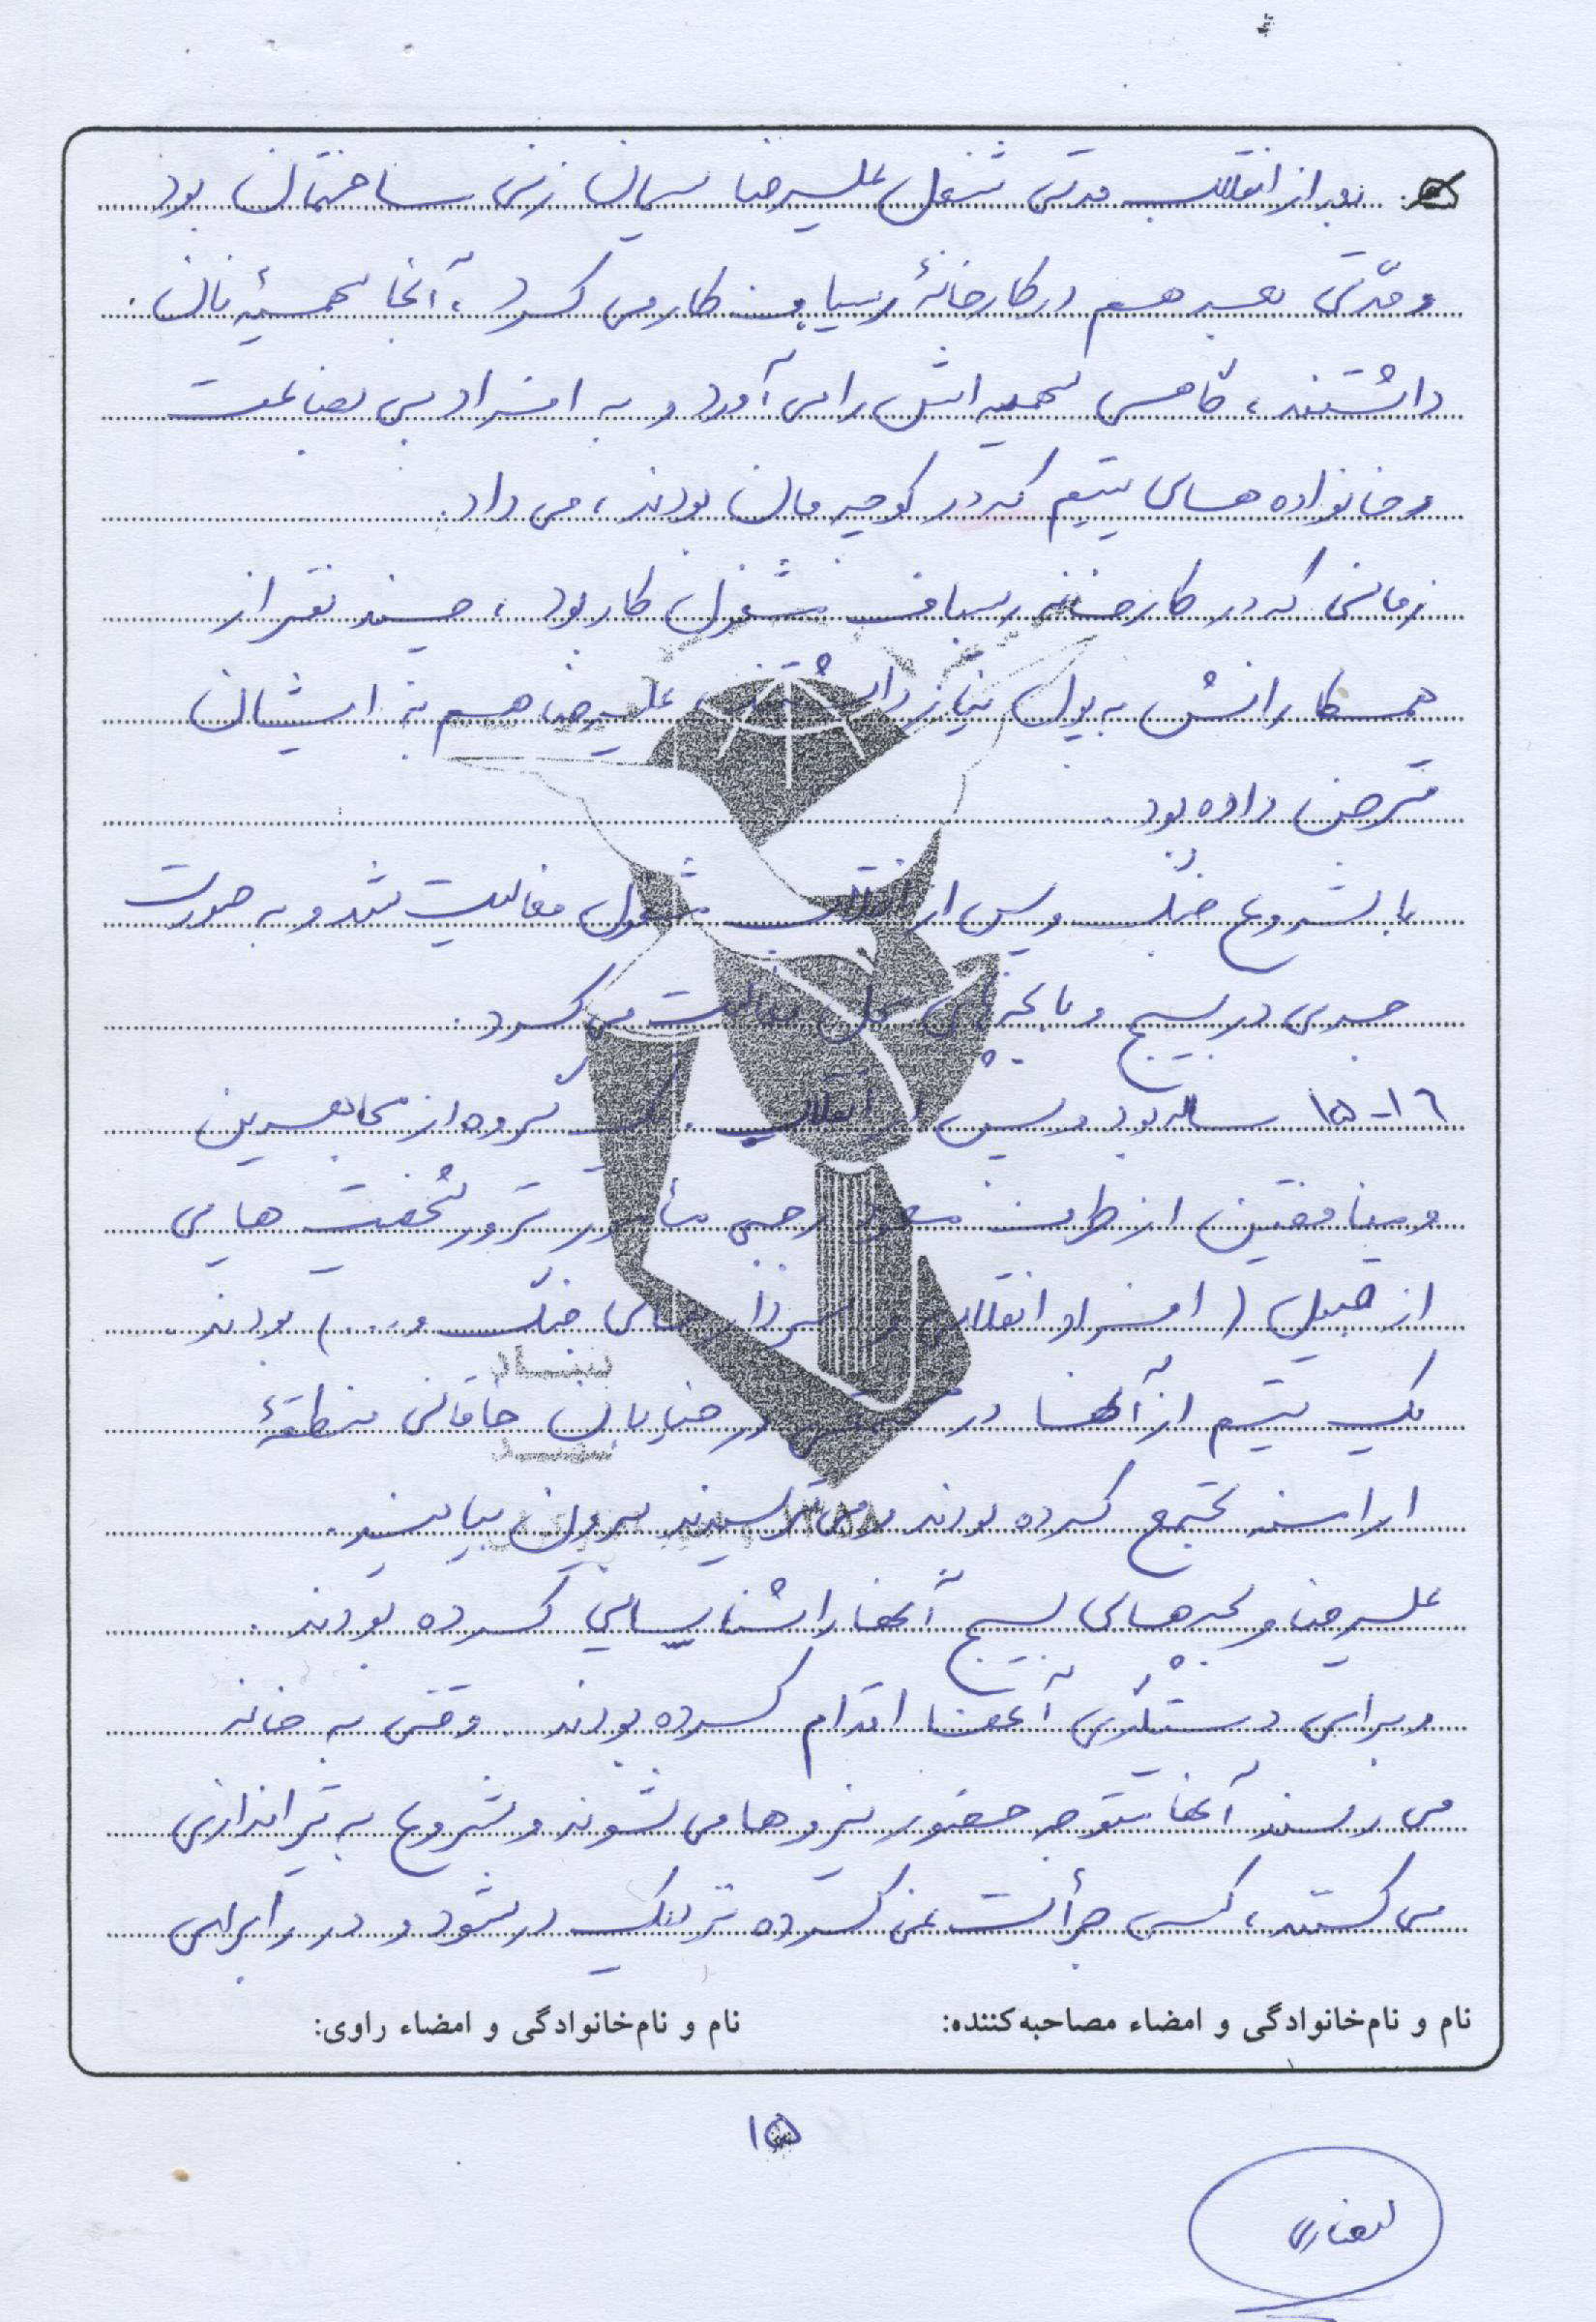 بعد از انقلاب مدتی شغل علیرضا سیمان زنی ساختمان بود
و مدّتی بعد هم در کارخانهٔ ریسباف کار می کرد، آنجا سهمیهٔ نان
داشتند، گاهی سهمیه اش را می آورد و به افراد بی بضاعت
و خانواده های یتیم که در کوچه مان بودند، می داد.
زمانی که در کارخانه ریسباف مشغول کار بود، چند نفر از
همکارانش به پول نیاز داشتند، علیرضا هم به ایشان
قرض داده بود.
با شروع جنگ و پس از انقلاب مشغول فعالیت شد و به صورت
جدی در بسیج و با بچه های محل فعالیت می کرد.
۱۵-۱۶ ساله بود و پس از انقلاب، یک گروه از مجاهدین
و منافقین از طرف مسعود رجبی مأمور ترور شخصیت هایی
از قبیل (افراد انقلابی و سربازهای جنگ و...) بودند.
یک تیم از آنها در در خیابان خاقانی منطقهٔ
ارامنه تجمع کرده بودند و می ترسیدند بیرون بیایند.
علیرضا و بچه های بسیج آنها را شناسایی کرده بودند.
و برای دستگیری آنها اقدام کرده بودند. وقتی به خانه
می رسند آنها متوجه حضور نیروها می شوند و شروع به تیراندازی
می کنند، کسی جرأت نمی کرده نزدیک در بشود و در را برای
نام و نام‌خانوادگی و امضاء مصاحبه‌کننده:
نام و نام‌خانوادگی و امضاء راوی:
۱۵